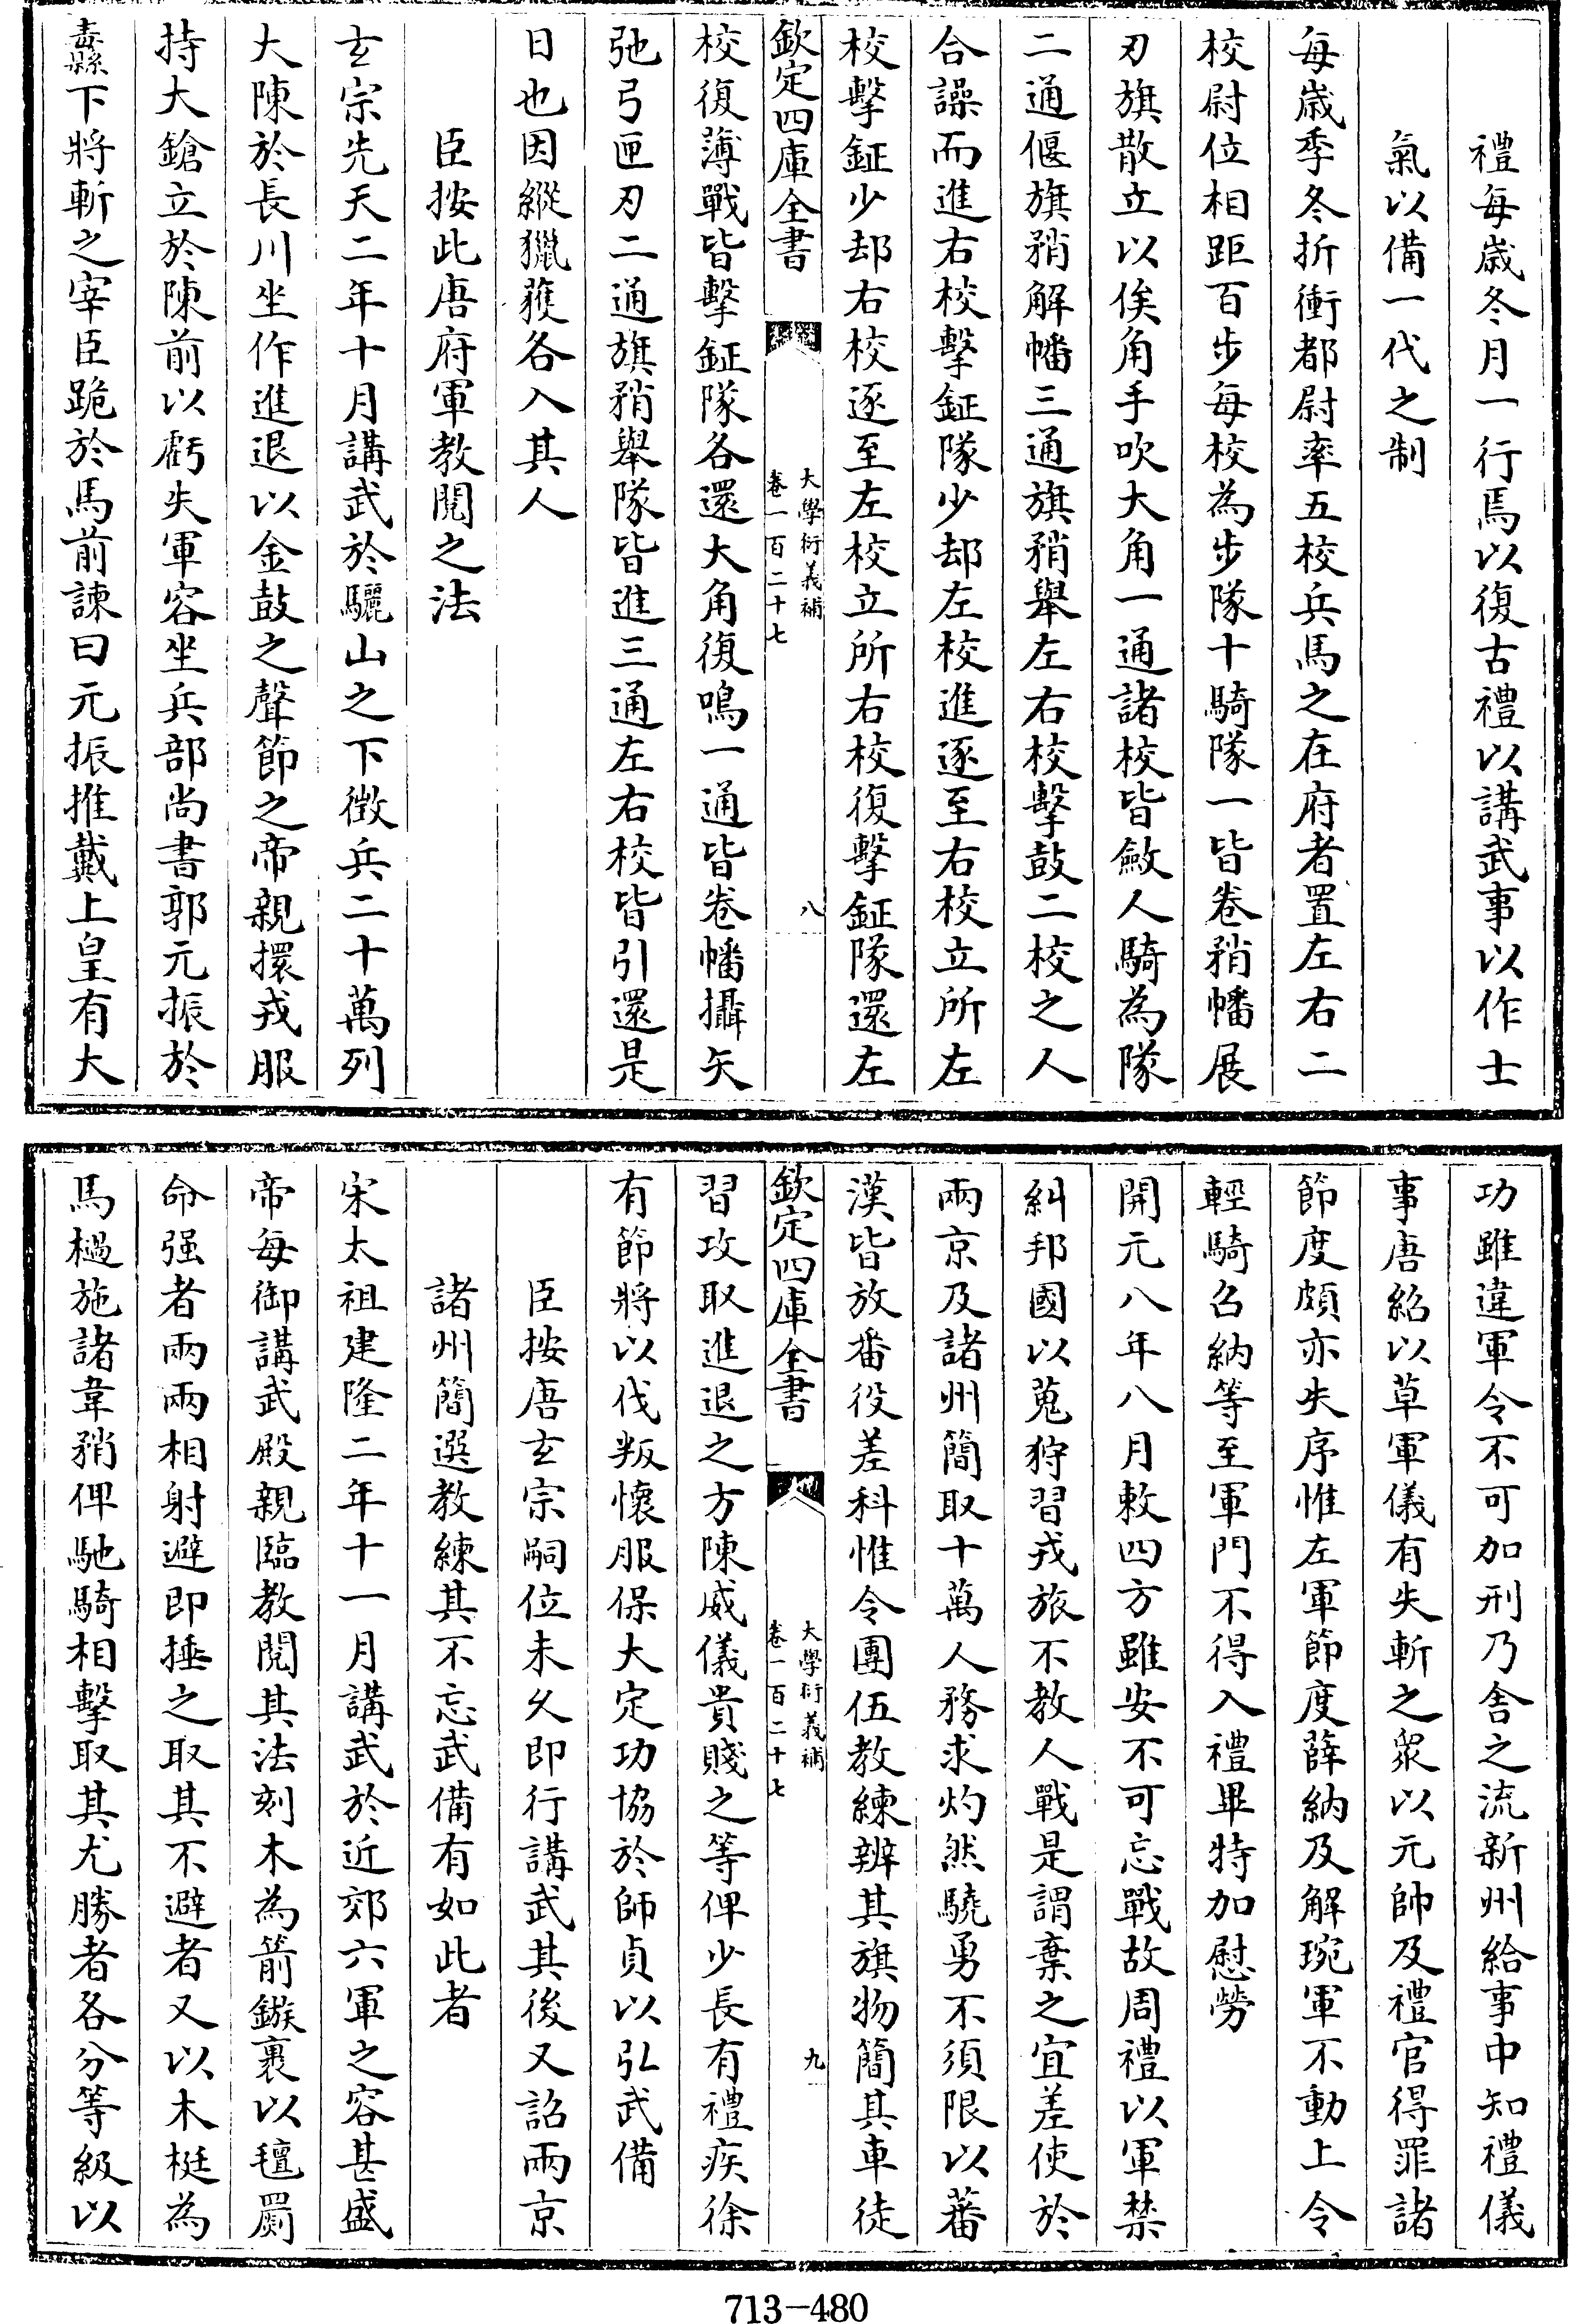 禮每歲冬月一行焉以復古禮以講武事以作士
氣以備一代之制
每歲季冬折衝都尉率五校兵馬之在府者置左右二
校尉位相距百步每校為步隊十騎隊一皆卷矟幡展
刃旗散立以俟角手吹大角一通諸校皆斂人騎為隊
二通偃旗矟解幡三通旗矟舉左右校擊鼓二校之人
合譟而進右校擊鉦隊少却左校進逐至右校立所左
校擊鉦少却右校逐至左校立所右校復擊鉦隊還左
欽定四庫全書
大學衍義補
卷一百二十七
八
校復薄戰皆擊鉦隊各還大角復鳴一通皆卷幡攝矢
弛弓匣刃二通旗矟舉隊皆進三通左右校皆引還是
日也因縱獵獲各入其人
臣按此唐府軍教閱之法
玄宗先天二年十月講武於驪山之下徴兵二十萬列
大陳於長川坐作進退以金鼓之聲節之帝親擐戎服
持大鎗立於陳前以虧失軍容坐兵部尚書郭元振於
纛下將斬之宰臣跪於馬前諫曰元振推戴上皇有大
功雖違軍令不可加刑乃舎之流新州給事中知禮儀
事唐紹以草軍儀有失斬之衆以元帥及禮官得罪諸
節度頗亦失序惟左軍節度薛納及解琬軍不動上令
輕騎召納等至軍門不得入禮畢特加慰勞
開元八年八月敕四方雖安不可忘戰故周禮以軍禁
糾邦國以蒐狩習戎旅不教人戰是謂棄之宜差使於
兩京及諸州簡取十萬人務求灼然驍勇不須限以蕃
漢皆放番役差科惟令團伍教練辨其旗物簡其車徒
欽定四庫全書
大學衍義補
卷一百二十七
九
習攻取進退之方陳威儀貴賤之等俾少長有禮疾徐
有節將以伐叛懷服保大定功協於師貞以弘武備
臣按唐玄宗嗣位未久即行講武其後又詔兩京
諸州簡選教練其不忘武備有如此者
宋太祖建隆二年十一月講武於近郊六軍之容甚盛
帝每御講武殿親臨教閱其法刻木為箭鏃裹以氊罽
命强者兩兩相射避即捶之取其不避者又以木梃為
馬檛施諸韋矟俾馳騎相擊取其尤勝者各分等級以
713-480